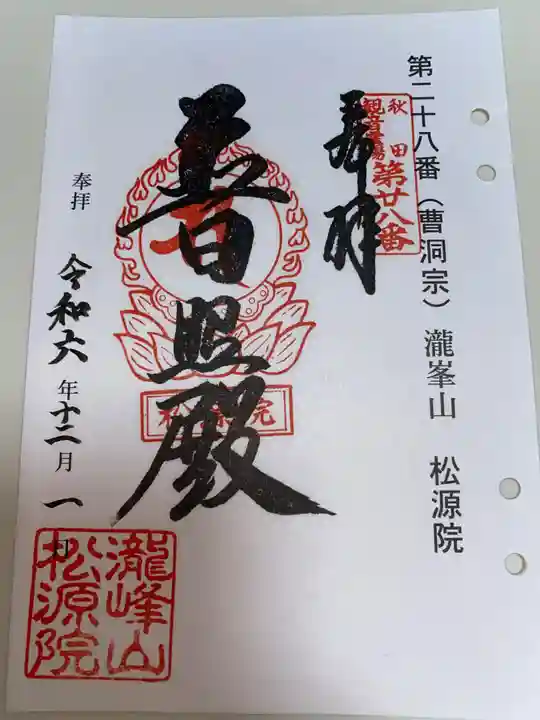 第二十八番（曹洞宗）瀧峯山　松源院
秋田
観音霊場
第廿八番
奉拝
普照殿
松源院
奉拝
令和六年十二月一日
瀧峰山
松源院